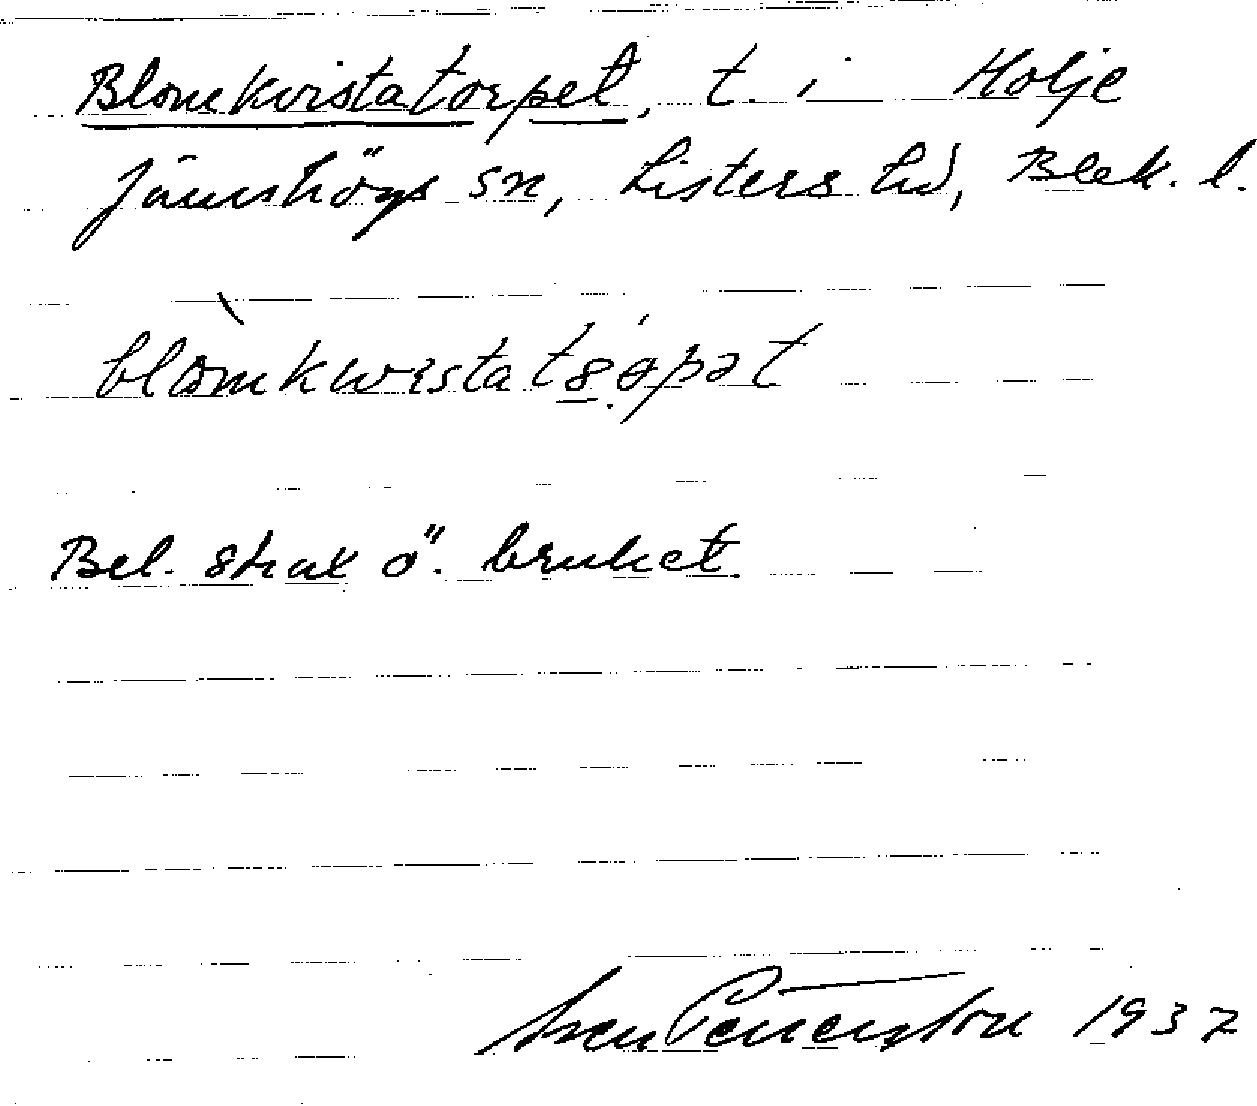 Blomkvistatorpet, t. i Holje
Jämshögs sn, Listers hd, Blek. l.
blòmkwistatǻrpət
Bel. strax ö. bruket
Sven Petterston 1937